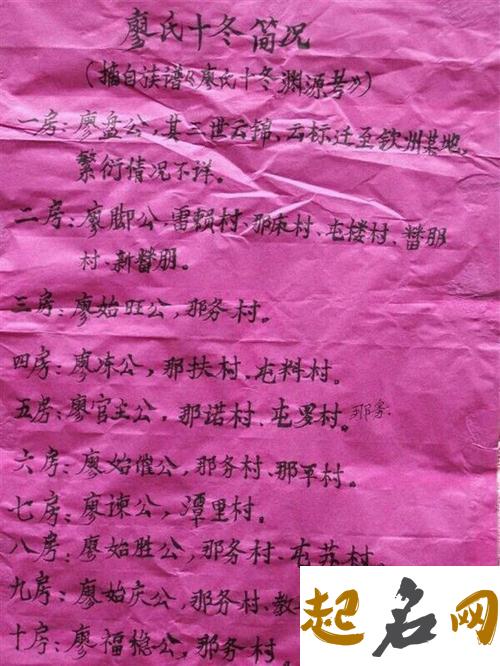 廖氏十冬简况
(摘自族谱《廖氏十冬渊源考》)
一房:廖盘公,其三世云锦,云标迁至钦州某地,
繁衍情况不详。
二房:廖脚公,雷赖村、那床村、屯楼村、替朋
村、新替朋。
三房:廖始旺公,那务村。
四房:廖冻公,那扶村、屯料村。
五房:廖官土公,那诺村、屯罗村。那雾
六房:廖始催公,那务村、那军村。
七房:廖谏公,潭里村。
八房:廖始胜公,那务村、屯苏村。
九房:廖始庆公,那务村、教
十房:廖福稳公,那务村
起名网